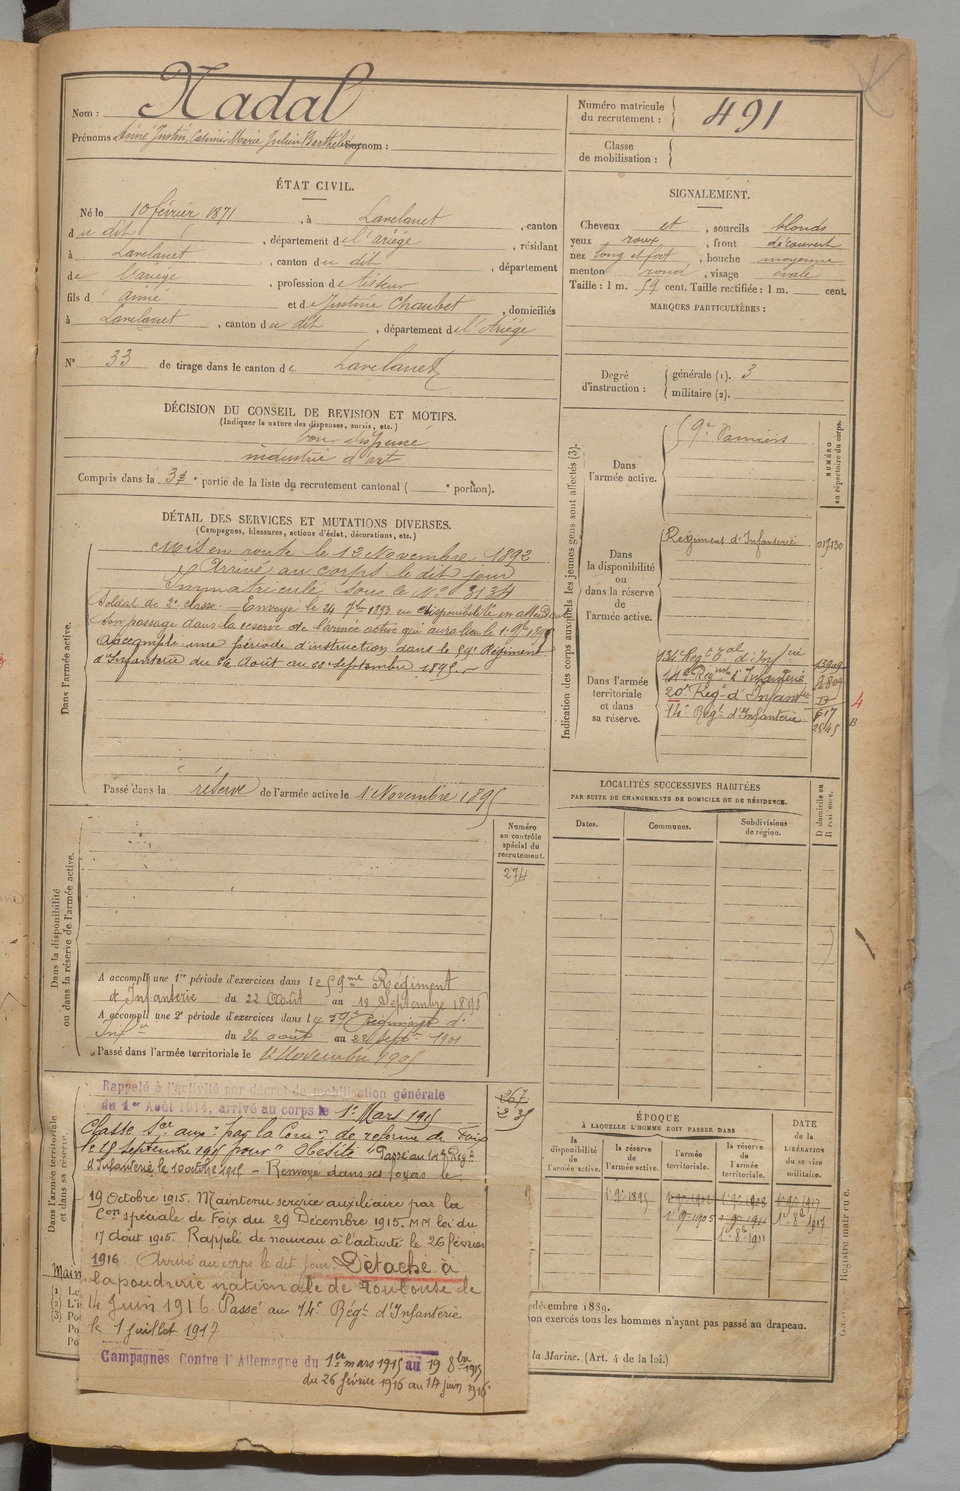 Nom : Nadal
Prénoms : Aimé Justin, Casimir Marie Julien Barthélémy Surnom :
Numéro matricule
du recrutement : 491
Classe
de mobilisation :
ÉTAT CIVIL.
Né le 10 février 1871, à Lavelanet, canton
du dit, département de l'ariége, résidant
à Lavelanet, canton du dit, département
de l'ariége, profession de tisseur
fils d' aimé et de Justine Chaubet, domiciliés
à Lavelanet, canton du dit, département de l'Ariége
N° 33 de tirage dans le canton de Lavelanet
SIGNALEMENT.
Cheveux et, sourcils blonds
yeux roux, front découvert
nez long et fort, bouche moyenne
menton rond, visage ovale
Taille : 1 m. 59 cent. Taille rectifiée : 1 m. cent.
MARQUES PARTICULIÈRES :
Degré
d'instruction :
générale (1). 3
militaire (2).
DÉCISION DU CONSEIL DE REVISION ET MOTIFS.
(Indiquer la nature des dispenses, sursis, etc.)
bon dispensé
industrie d'art
Compris dans la 3e partie de la liste du recrutement cantonal ( e portion).
DÉTAIL DES SERVICES ET MUTATIONS DIVERSES.
(Campagnes, blessures, actions d'éclat, décorations, etc.)
Dans l'armée active.
Mis en route le 12 Novembre 1892
Arrivé au corps le dit jour
Immatriculé sous le No 3134
Soldat de 2e classe. Envoyé le 24 7bre 1893 en disponibilité en attendant
son passage dans la réserve de l'armée active qui aura lieu le 1er 9bre 1895
Accompli une période d'instruction dans le 59e Régiment
d'Infanterie du 26 Août au 22 septembre 1895.
Passé dans la réserve de l'armée active le 1 Novembre 1895
Indication des corps auxquels les jeunes gens sont affectés (3).
NUMÉRO
au répertoire du corps.
Dans
l'armée active.
59e Pamiers
Dans
la disponibilité
ou
dans la réserve
de
l'armée active.
Régiment d'Infanterie
Dans l'armée
territoriale
et dans
sa réserve.
136e Regt Tal d'Infrie
144e Regmt d'Infanterie
20e Regt d'Infantrie
14e Regt d'Infanterie
617
2545
4
B
Dans la disponibilité
ou dans la réserve de l'armée active.
Numéro
au contrôle
spécial du
recrutement.
274
A accompli une 1re période d'exercices dans le 59me Régiment
d'Infanterie du 22 Août au 18 Septembre 1898
A accompli une 2e période d'exercices dans le 59e Régiment d'
Infrie du 26 août au 22 septbre 1901
Passé dans l'armée territoriale le 1 Novembre 1905
LOCALITÉS SUCCESSIVES HABITÉES
PAR SUITE DE CHANGEMENTS DE DOMICILE OU DE RÉSIDENCE.
Dates.
Communes.
Subdivisions
de région.
D domicile ou
R résidence.
Dans l'armée territoriale
et dans sa réserve.
267
235
Rappelé à l'activité par décret de mobilisation générale
du 1er Août 1914, arrivé au corps le 1er Mars 1915
Classé Sce auxre par la Comon de réforme de Foix
le 15 septembre 1915 pour "Obésité" Passé au 14e Regt
d'Infanterie le 10 octobre 1915 - Renvoyé dans ses foyers le
19 Octobre 1915. Maintenu service auxiliaire par la
Con spéciale de Foix du 29 Décembre 1915. MM loi du
17 août 1915. Rappelé de nouveau à l'activité le 26 février
1916 Arrivé au corps le dit jour Détaché à
la poudrerie nationale de Toulouse de
14 Juin 1916. Passé au 14e Régt d'Infanterie
le 1 Juillet 1917
Campagnes Contre l'Allemagne du 1er mars 1915 au 19 8bre 1915
du 26 février 1916 au 14 Juin 1916
ÉPOQUE
À LAQUELLE L'HOMME DOIT PASSER DANS
la
disponibilité
de
l'armée active.
la réserve
de
l'armée active.
l'armée
territoriale.
la réserve
de
l'armée
territoriale.
DATE
de la
LIBÉRATION
du service
militaire.
1er 9bre 1895
1er 9bre 1905
1er 8bre 1911
1er 8bre 1917
décembre 1889.
non exercés tous les hommes n'ayant pas passé au drapeau.
la Marine. (Art. 4 de la loi.)
Registre matricule.